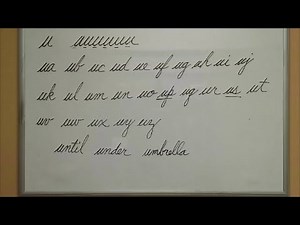 u uuuuuu
ua ub uc ud ue uf ug uh ui uj
uk ul um un uo up uq ur us ut
uv uw ux uy uz
until under umbrella